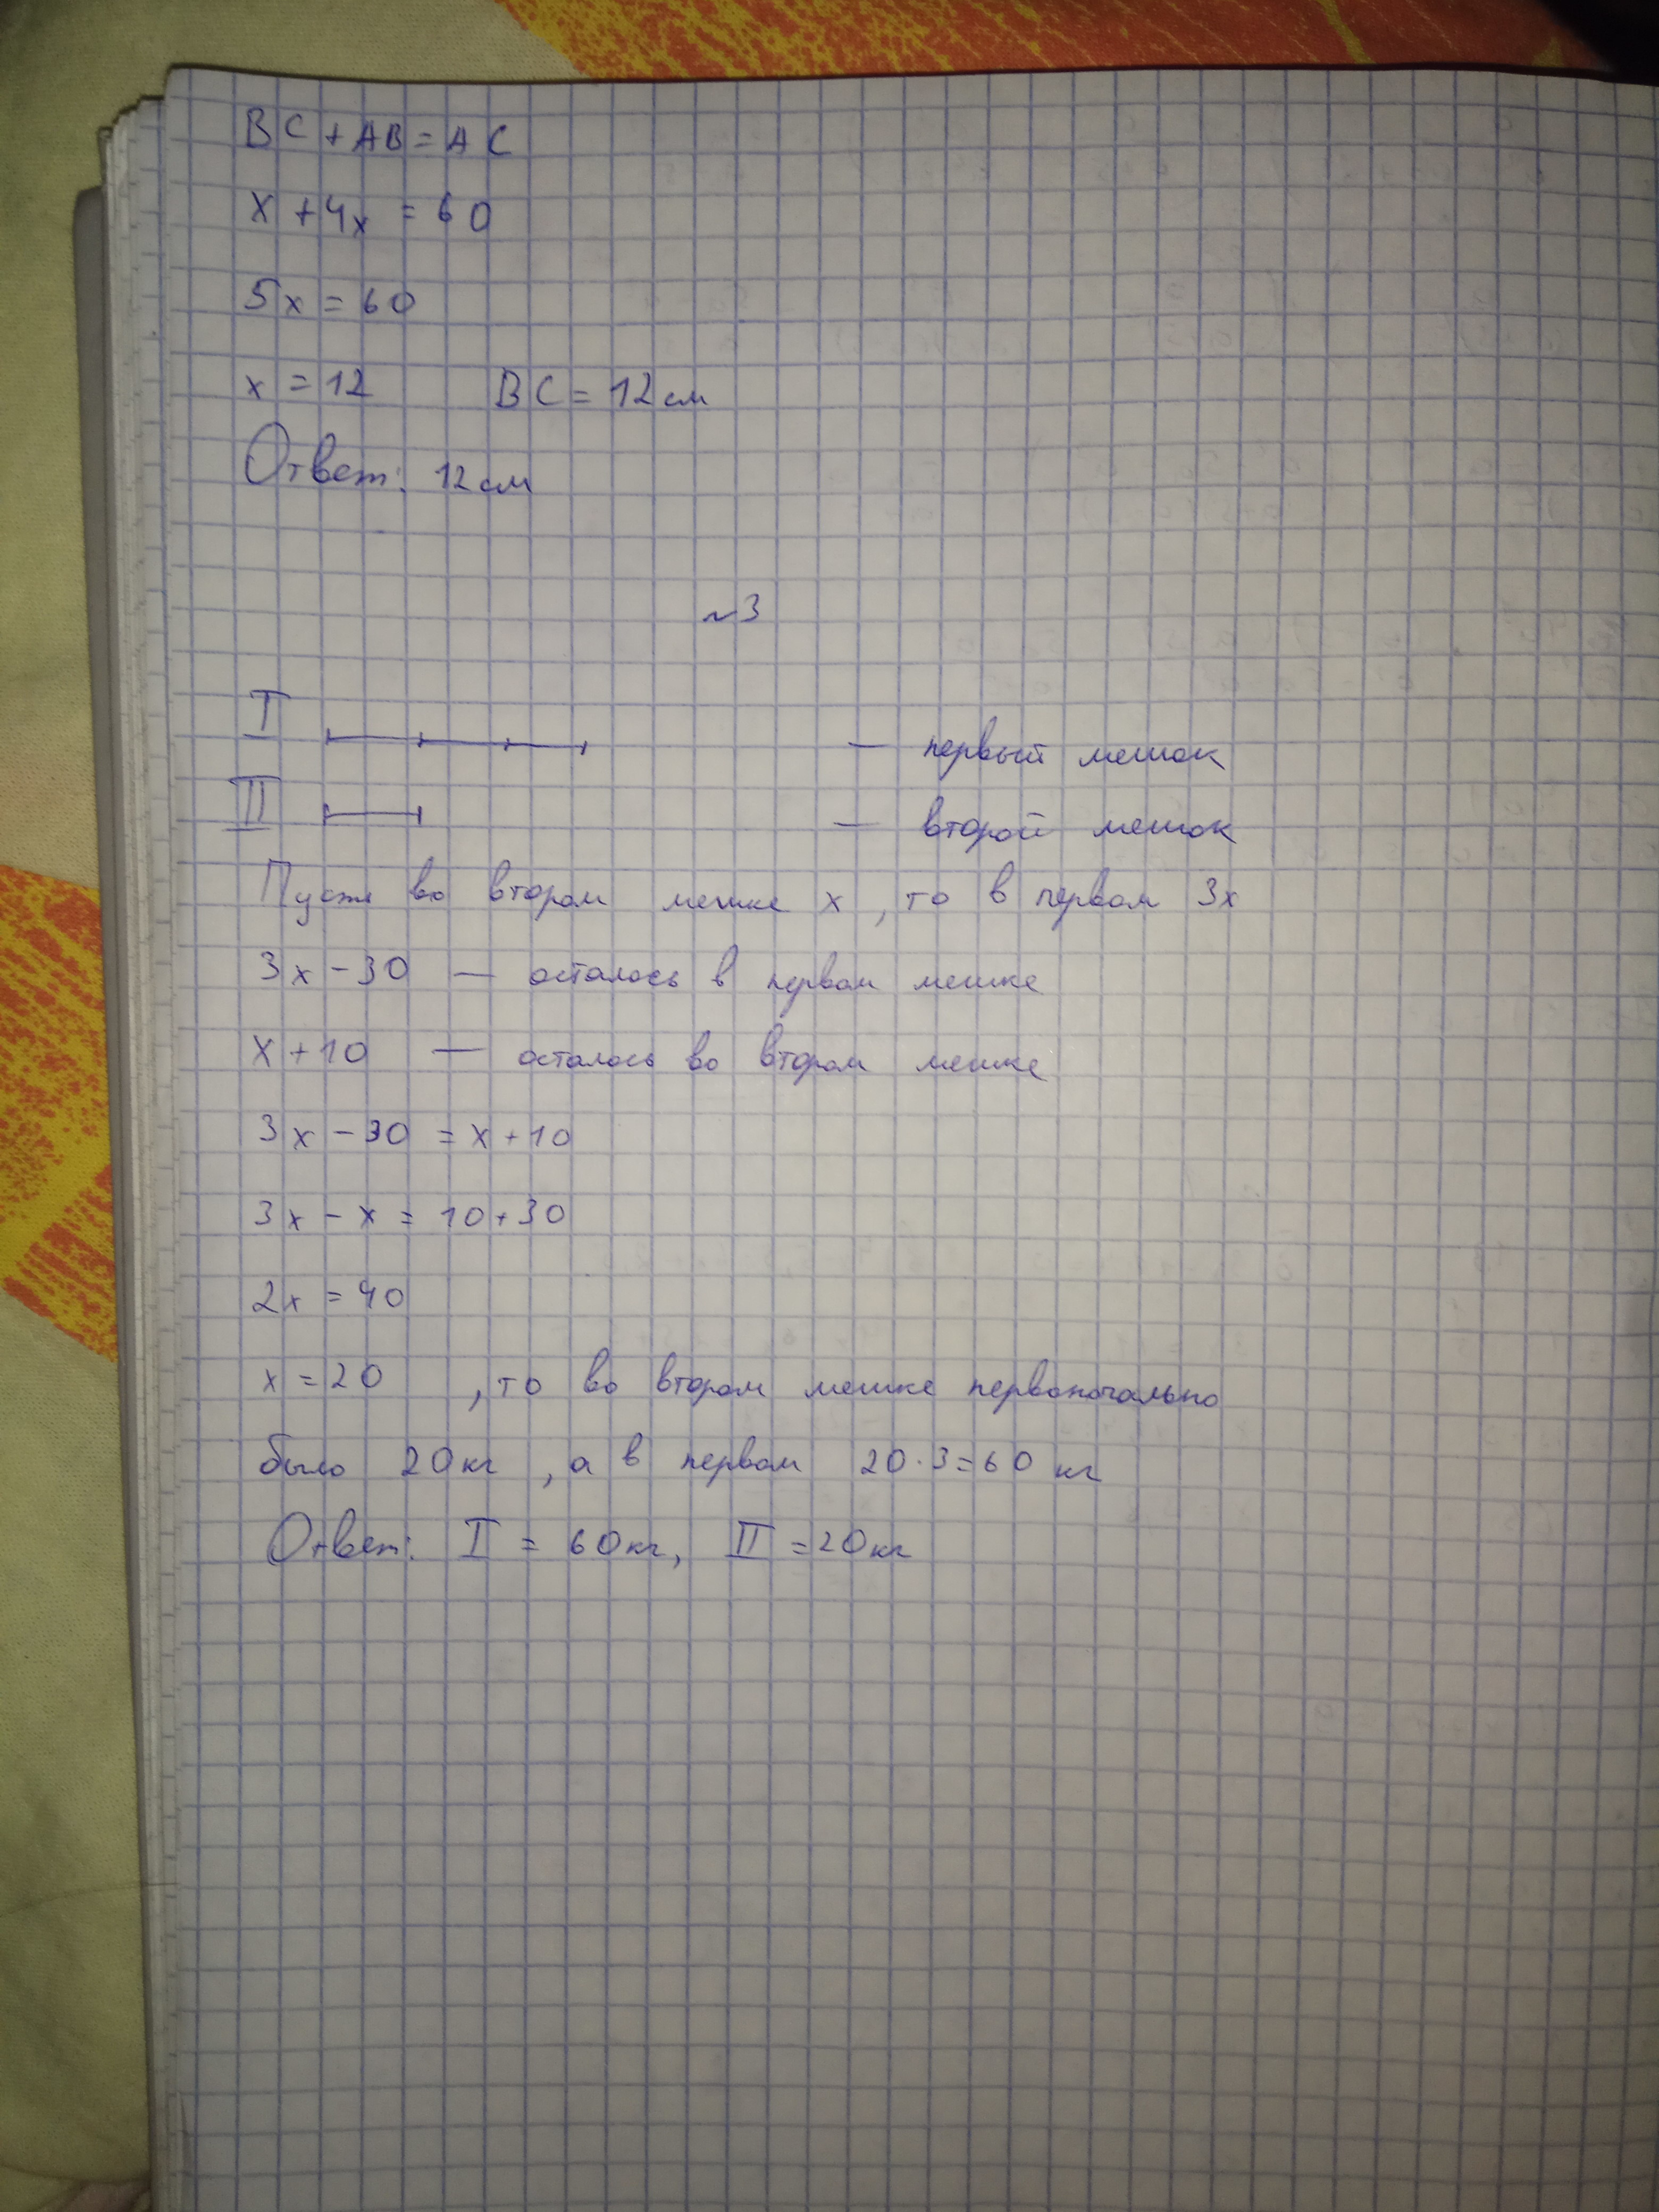 BC + AB = AC
x + 4x = 60
5x = 60
x = 12 BC = 12 см
Ответ: 12 см
№3
I — первый мешок
II — второй мешок
Пусть во втором мешке x, то в первом 3x
3x - 30 — осталось в первом мешке
x + 10 — осталось во втором мешке
3x - 30 = x + 10
3x - x = 10 + 30
2x = 40
x = 20, то во втором мешке первоначально
было 20 кг, а в первом 20 · 3 = 60 кг
Ответ: I = 60 кг, II = 20 кг